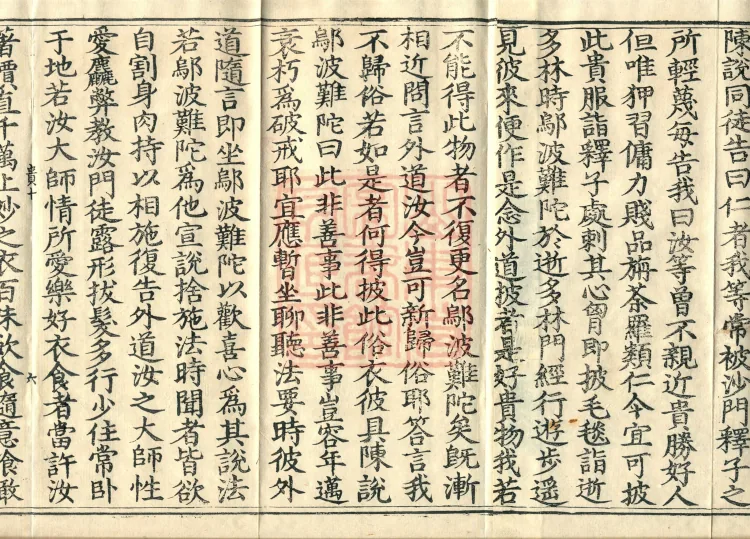 陳說同徒告曰仁者我等常被沙門釋子之
所輕蔑每告我曰汝等曾不親近貴勝好人
但唯狎習傭力賤品旃荼羅類仁今宜可披
此貴服詣釋子處刺其心胷即披毛毯詣逝
多林時鄔波難陀於逝多林門經行遊步遥
見彼來便作是念外道披者是好貴物我若
不能得此物者不復更名鄔波難陀矣旣漸
相近問言外道汝今豈可新歸俗耶荅言我
不歸俗若如是者何得披此俗衣彼具陳說
鄔波難陀曰此非善事此非善事豈容年邁
衰朽爲破戒耶宜應暫坐聊聽法要時彼外
道隨言即坐鄔波難陀以歡喜心爲其說法
若鄔波難陀爲他宣說捨施法時聞者皆欲
自割身肉持以相施復告外道汝之大師性
愛麤弊教汝門徒露形拔髮多行少住常卧
于地若汝大師情所愛樂好衣食者當許汝
六
著價直千萬上妙之衣百味飲食隨意飡噉